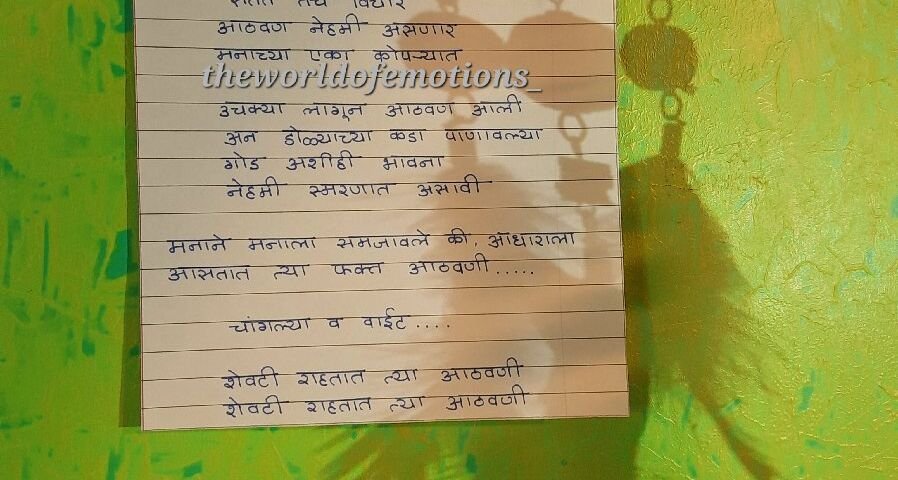 सतत तेच विचार
आठवण नेहमी असणार
मनाच्या एका कोपऱ्यात
theworldofemotions_
उचक्या लागून आठवण आली
अन डोळ्याच्या कडा पाणावल्या
गोड अशीही भावना
नेहमी स्मरणात असावी
मनाने मनाला समजावले की, आधाराला
आसतात त्या फक्त आठवणी.....
चांगल्या व वाईट....
शेवटी राहतात त्या आठवणी
शेवटी राहतात त्या आठवणी